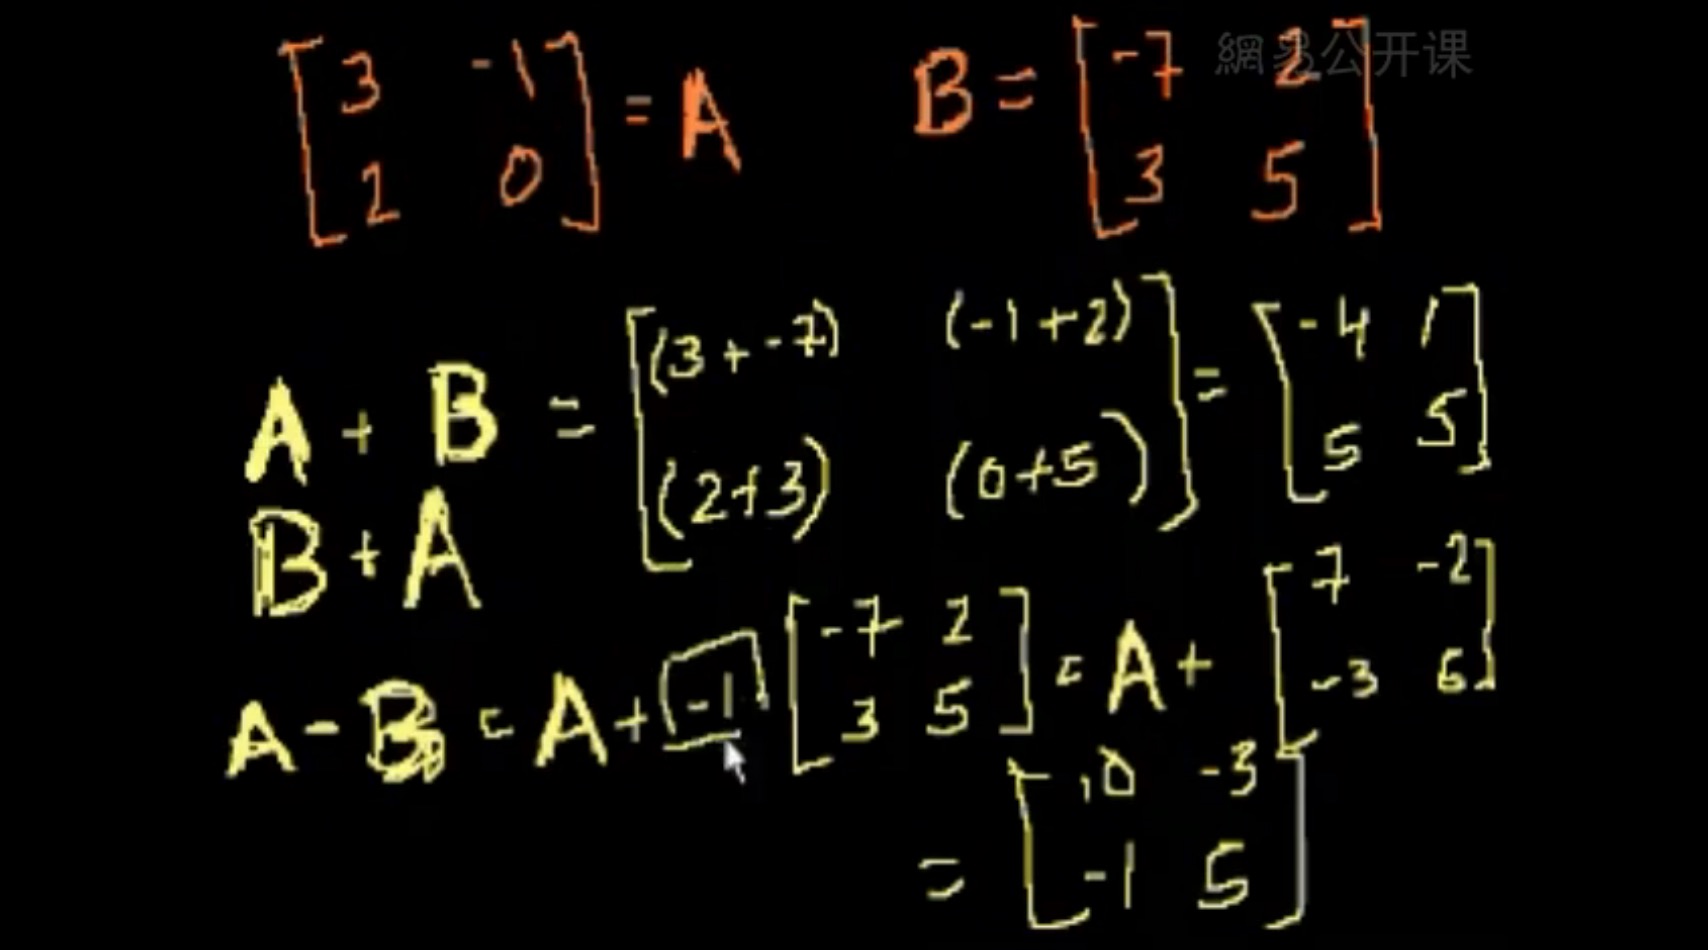 網易公开课
[3 -1; 2 0] = A    B = [-7 2; 3 5]
A + B = [(3 + -7) (-1 + 2); (2+3) (0+5)] = [-4 1; 5 5]
B + A
A - B = A + (-1) [-7 2; 3 5] = A + [7 -2; -3 5]
= [10 -3; -1 5]